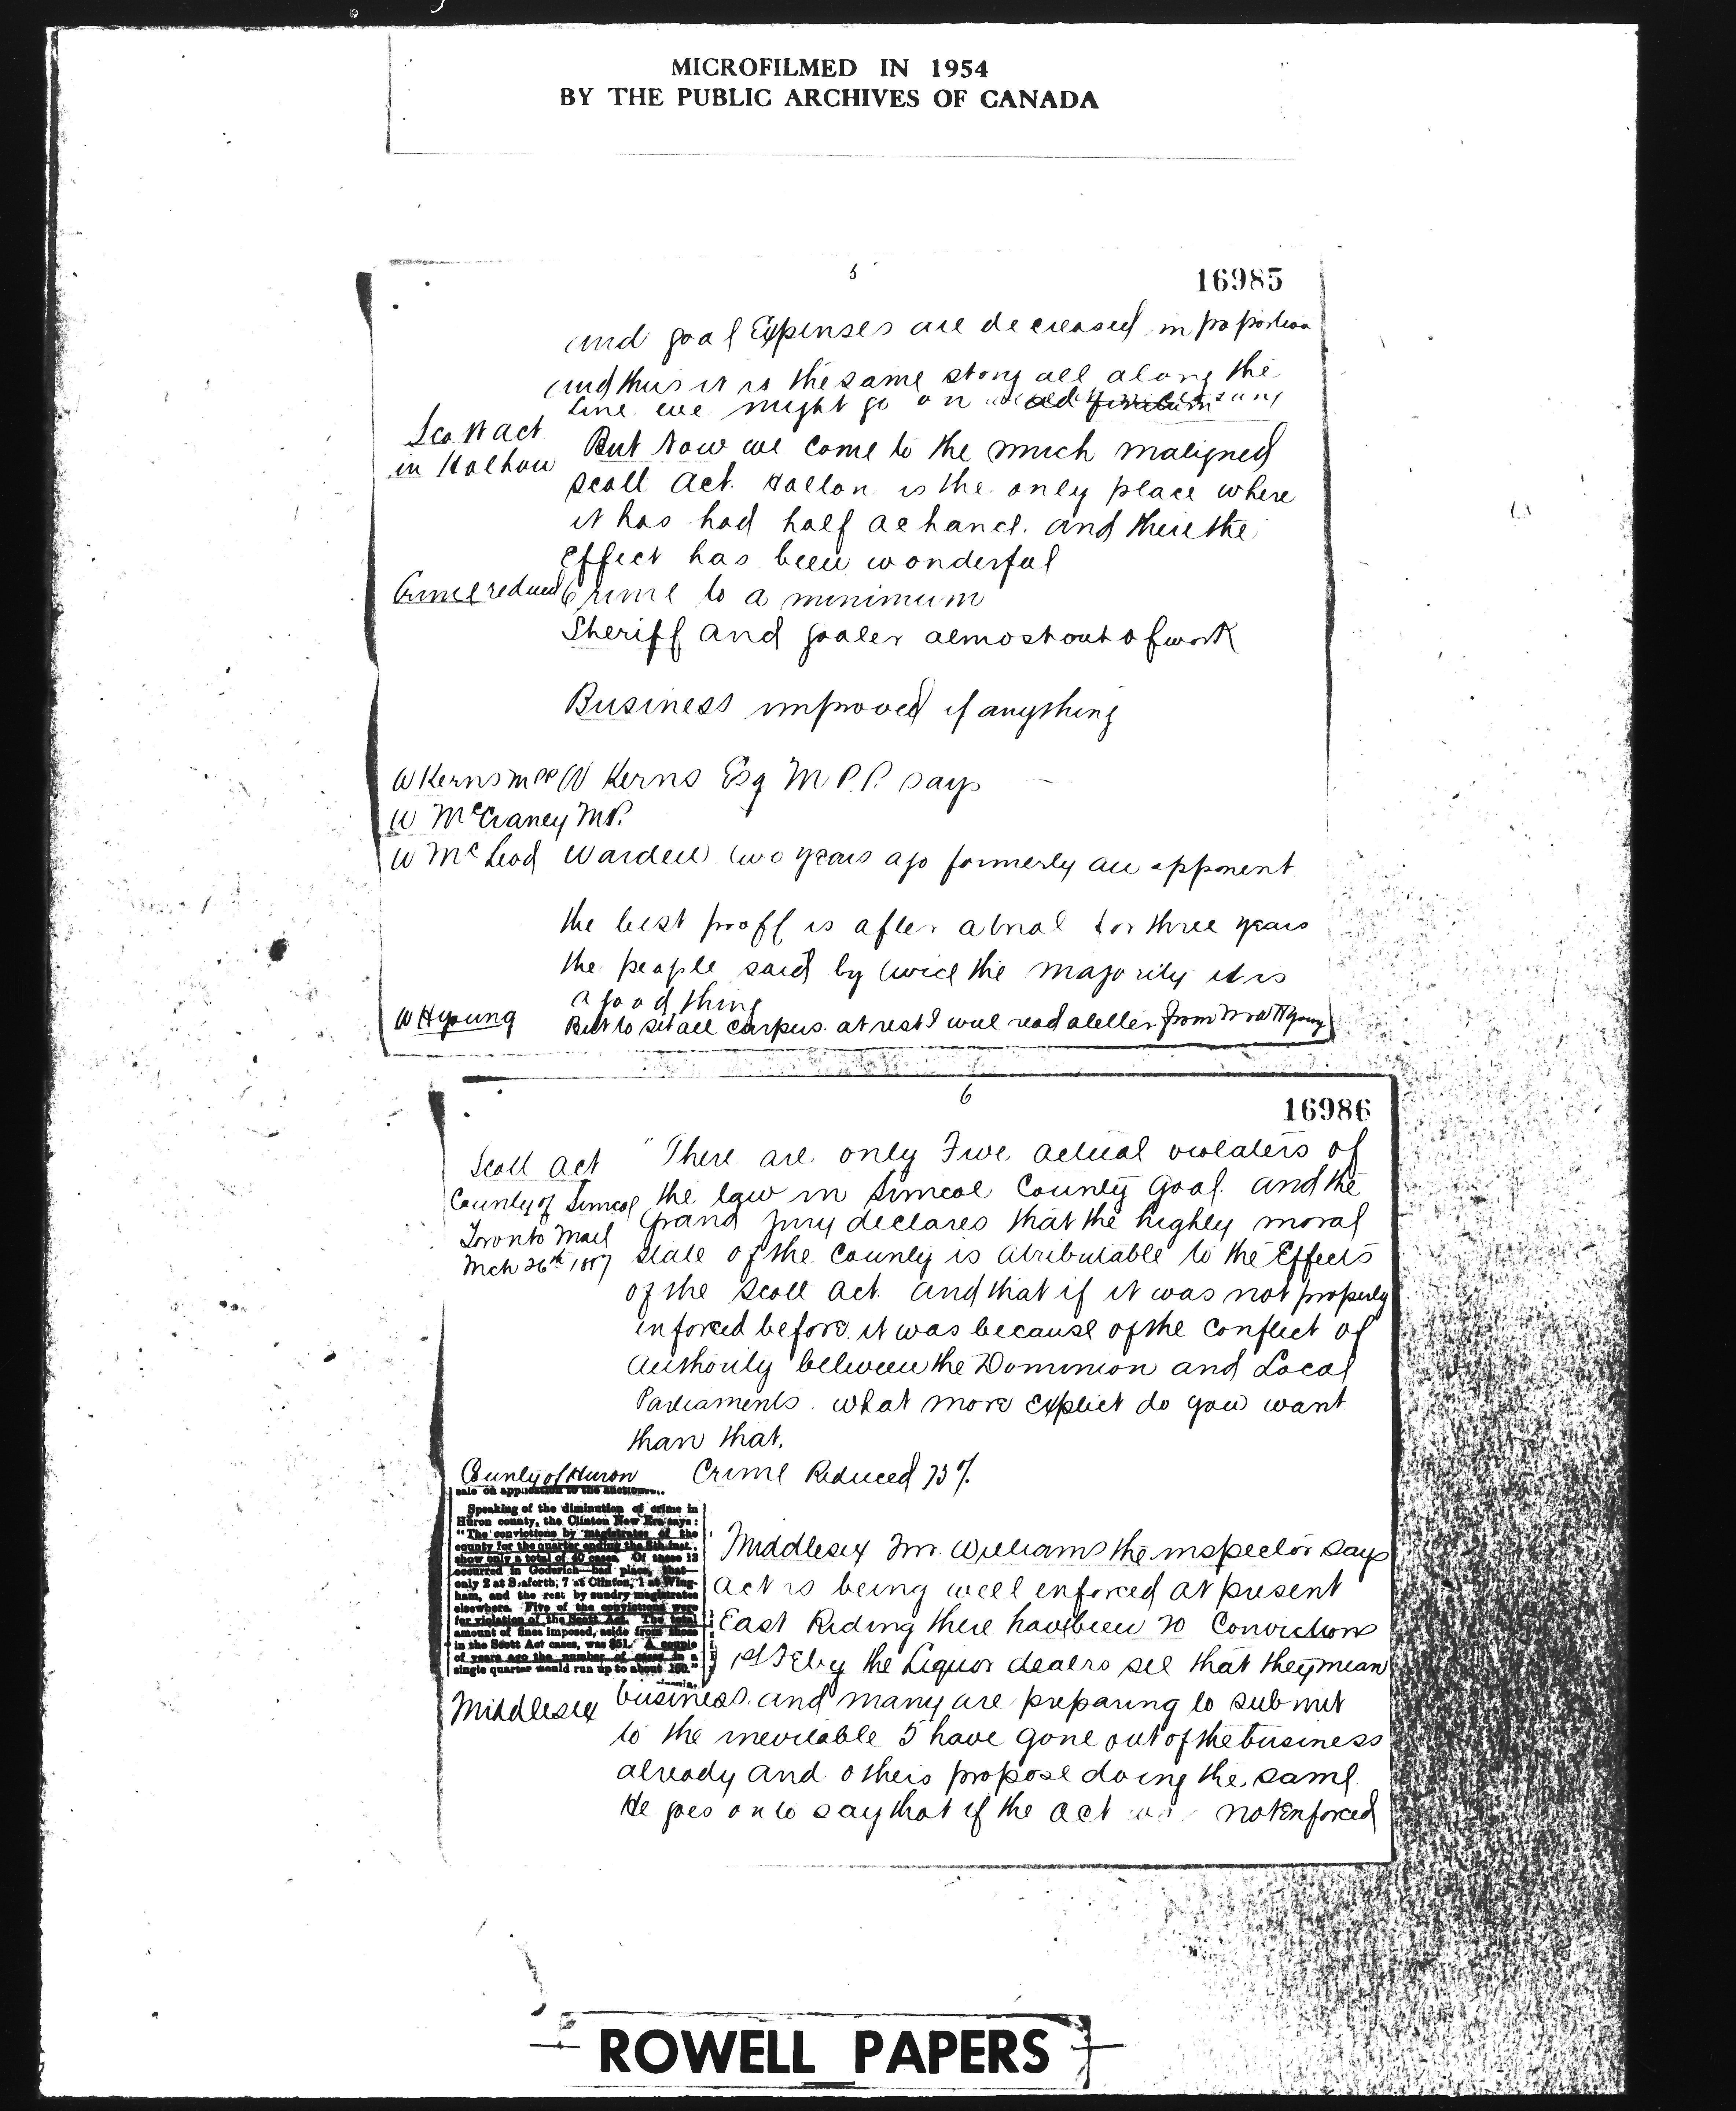 MICROFILMED IN 1954
BY THE PUBLIC ARCHIVES OF CANADA
5
16985
and goal Expenses are decreased in proportion
and thus it is the same story all along the
line we might go on
Scott act
in Halton
But Now we come to the much maligned
Scott Act. Halton is the only place where
it has had half a chance. and there the
Effect has been wonderful
Crime reduced
Crime to a minimum
Sheriff and goaler almost out of work
Business improved if anything
W Kerns MPP W Kerns Esq M.P.P. says
W McCraney MP.
W McLeod Warden two years ago formerly an opponent
the best prooff is after a trial for three years
the people said by twice the majority it is
a good thing
W H Young
But to set all at rest I will read a letter from Mr W H Young
6
16986
Scott Act
County of Simcoe
Toronto Mail
Mch 26th 1887
"There are only Five actual violaters of
the law in Simcoe County Goal. and the
Grand Jury declares that the highly moral
state of the County is atributable to the Effects
of the Scott Act. and that if it was not properly
inforced before it was because of the Conflict of
Authority between the Dominion and Local
Parliaments. what more Explict do you want
than that.
County of Huron Crime Reduced 75%
sale on application to the auctioneer.
Speaking of the diminution of crime in
Huron county, the Clinton New Era says:
"The convictions by magistrates of the
county for the quarter ending the 8th inst.
show only a total of 40 cases. Of these 13
occurred in Goderich—bad place, that—
only 2 at Seaforth; 7 at Clinton, 1 at Wing-
ham, and the rest by sundry magistrates
elsewhere. Five of the convictions were
for violation of the Scott Act. The total
amount of fines imposed, aside from those
in the Scott Act cases, was $51. A couple
of years ago the number of cases in a
single quarter would run up to about 160."
Middlesex Mr. Williams the inspector says
Act is being well enforced at present
East Riding there have been 20 Convictions
1st Feby the Liquor dealers see that they mean
Middlesex
business. and many are preparing to submit
to the inevitable 5 have gone out of the business
already and others propose doing the same.
He goes on to say that if the act not Enforced
ROWELL PAPERS